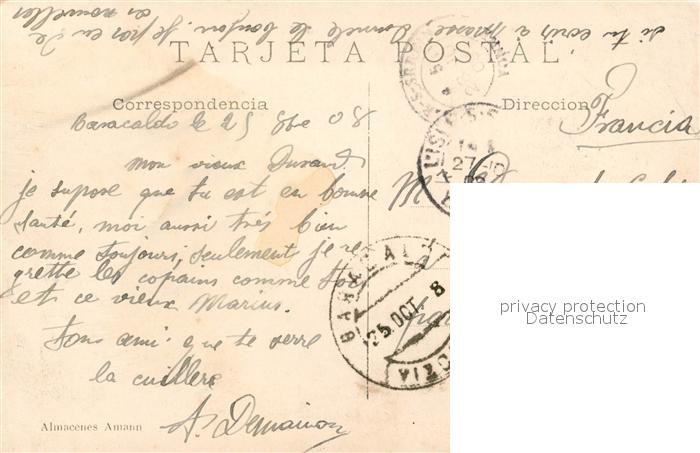 si tu ecris a Marre donnele le bonjour. je pas eu de
ses nouvelles
TARJETA POSTAL
Correspondencia
Direccion
Francia
Baracaldo le 25 8bre 08
mon vieux Durand
je supose que tu est en bonne
santé, moi aussi très bien
comme toujours, seulement je re
grette les copains comme toy
est ce vieux Marius.
Tons ami que te serre
la cuillere
A. Demaison
Almacenes Amann
BARACALD
25 OCT 8
27
privacy protection
Datenschutz